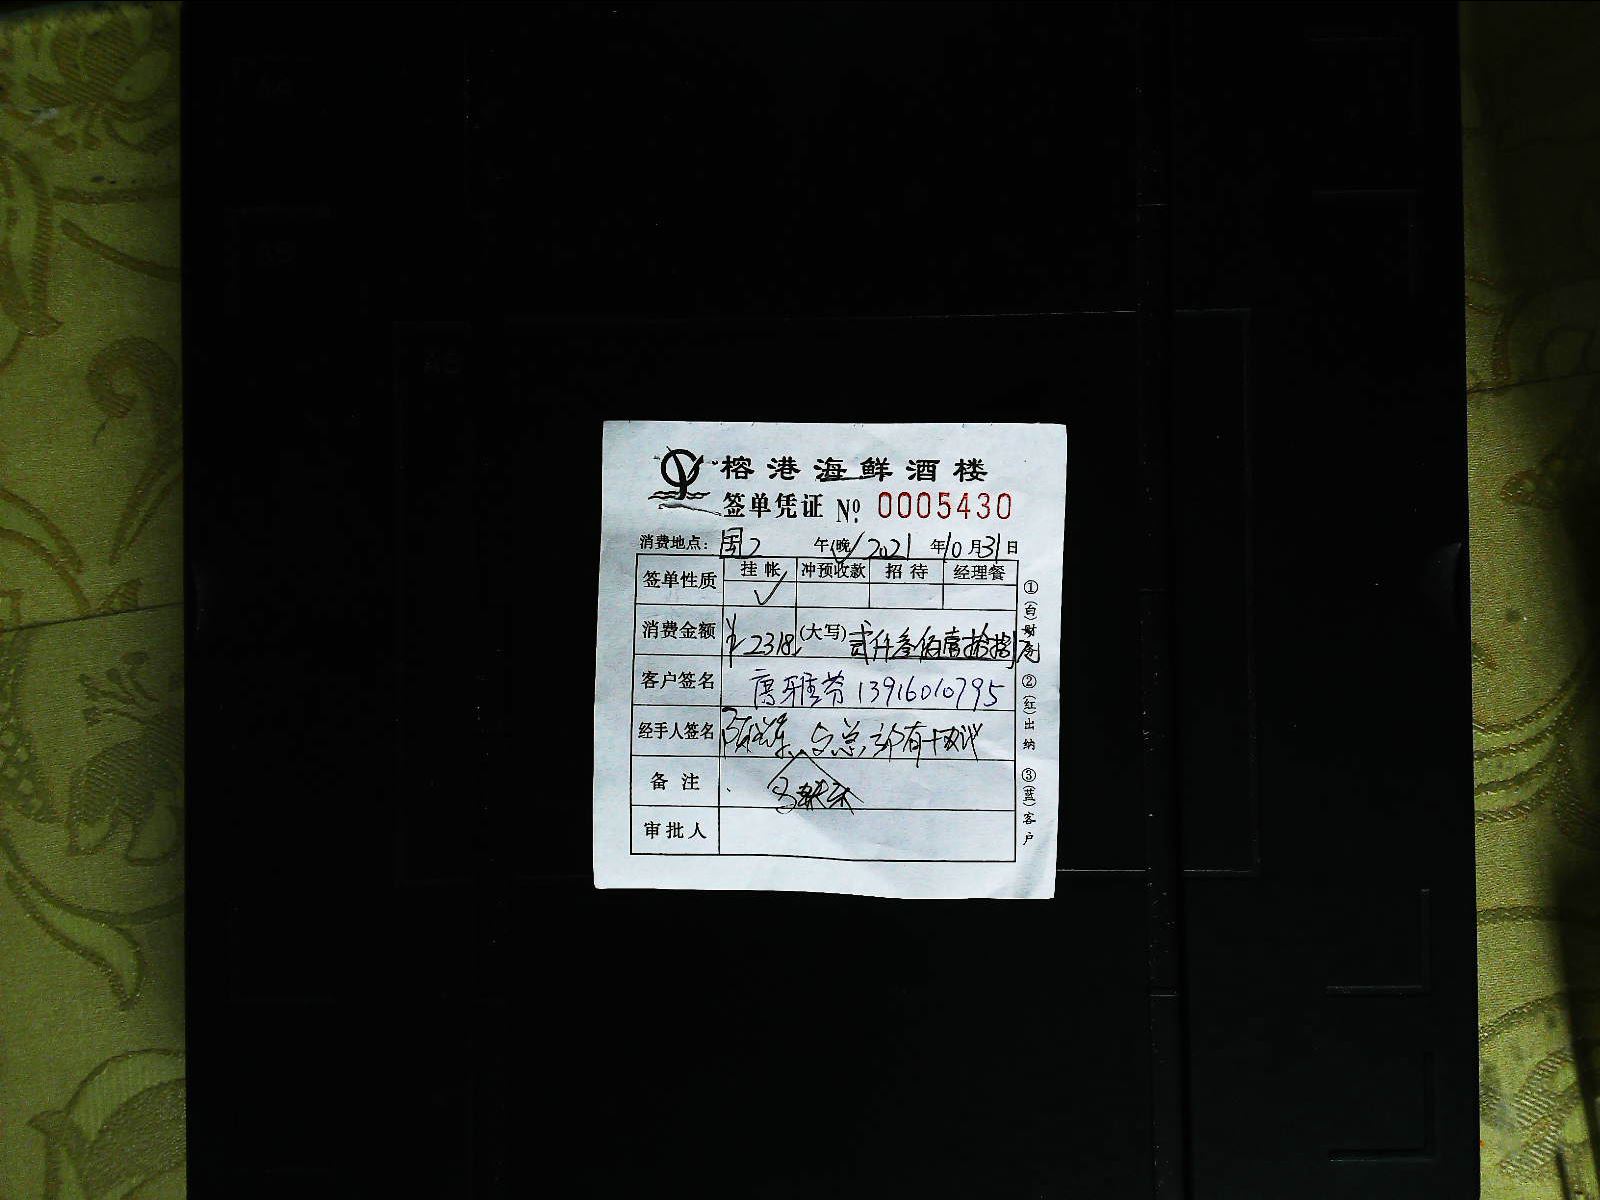 榕港海鲜酒楼
签单凭证 № 0005430
消费地点: 国2 午(晚) 2021 年 10 月 31 日
签单性质 挂帐 冲预收款 招待 经理餐
✓
消费金额 ¥2318 (大写) 贰仟叁佰壹拾捌
客户签名 13916010795
经手人签名 与总 有协议
备注
审批人
①(白)财务
②(红)出纳
③(蓝)客户